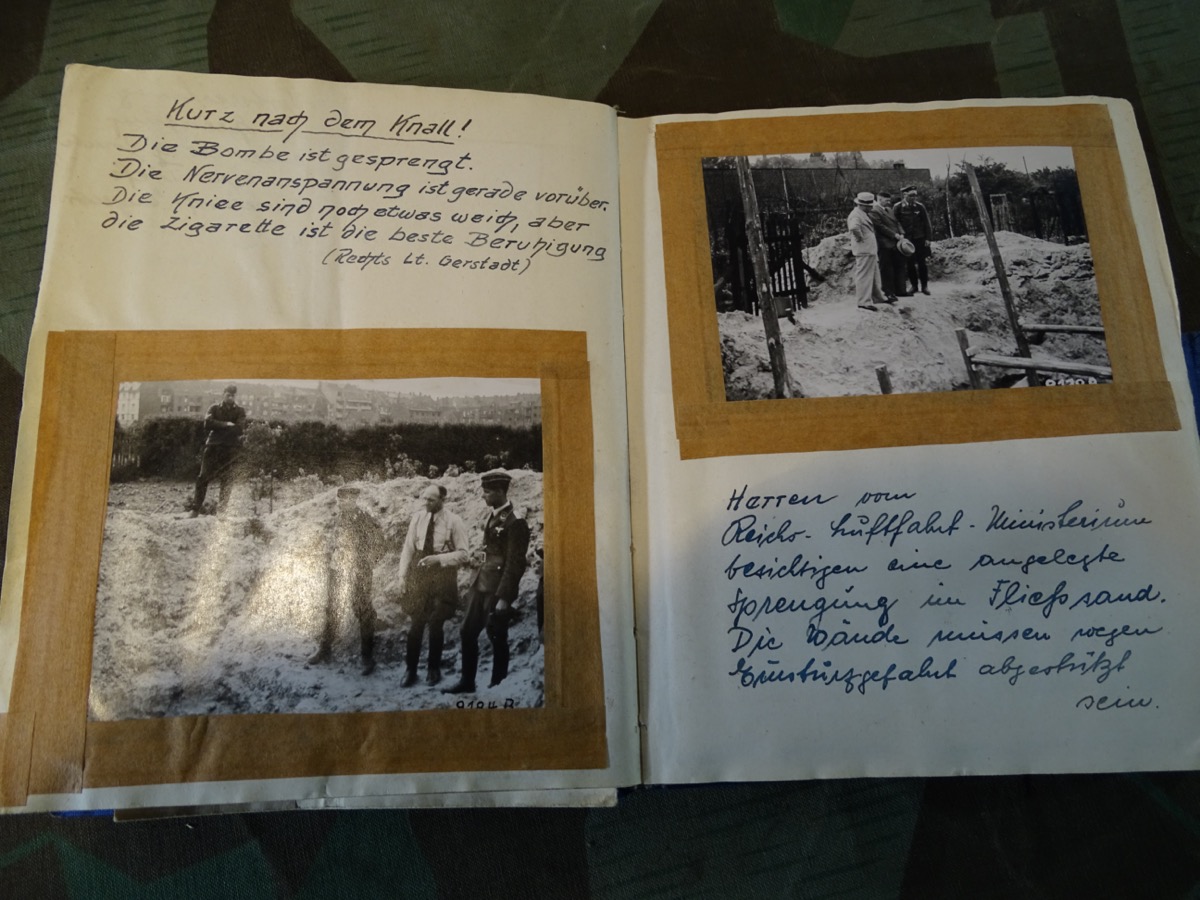 Kurz nach dem Knall!
Die Bombe ist gesprengt.
Die Nervenanspannung ist gerade vorüber.
Die Kniee sind noch etwas weich, aber
die Zigarette ist die beste Beruhigung
(Rechts Lt. Gerstadt)
9184 B
9179 B
Herren vom
Reichs-Luftfahrt-Ministerium
besichtigen eine angelegte
Sprengung im Fließsand.
Die Wände müssen wegen
Einsturzgefahr abgestützt
sein.